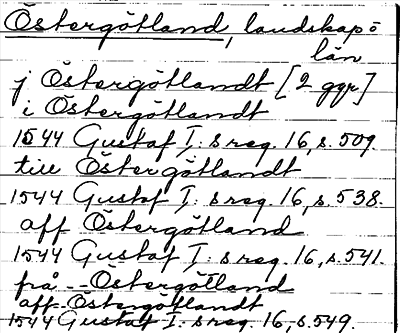 Östergötland, landskap o
län
j Östergötlandt [2 ggr]
i Östergötlandt
1544 Gustaf I: s reg. 16, s. 509.
till Östergötlandt
1544 Gustaf I: s reg. 16, s. 538.
aff Östergötland
1544 Gustaf I: s reg. 16, s. 541.
frå -- Östergötland
aff Östergötlandt
1544 Gustaf I: s reg. 16, s. 549.